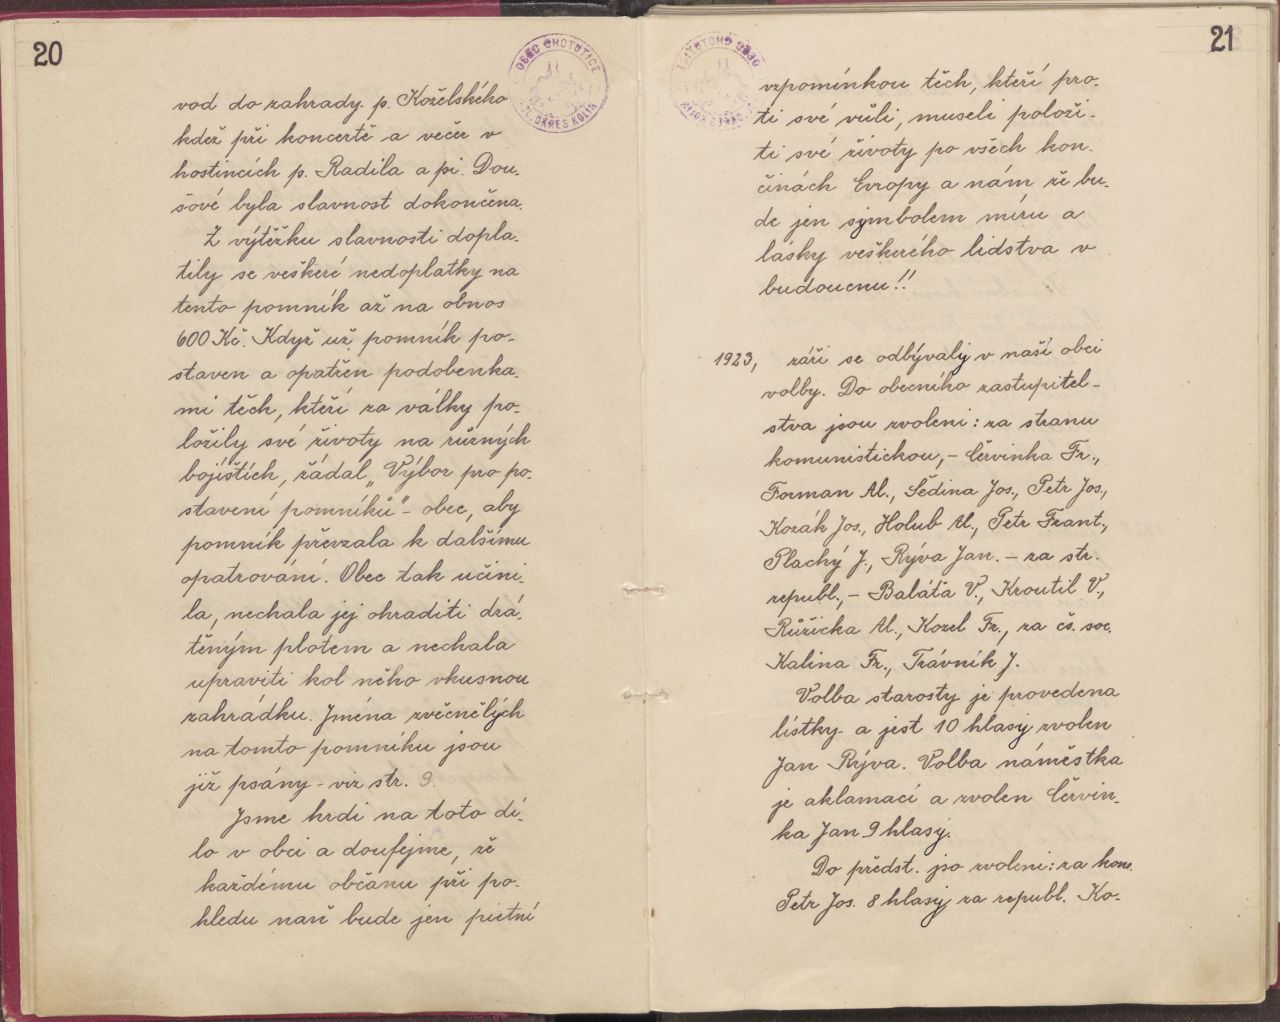 20
OBEC CHOTUTICE
OKRES KOLÍN
vod do zahrady p. Kořelského
kdež při koncertě a večer v
hostincích p. Radila a pí. Dou-
šové byla slavnost dokončena.
Z výtěžku slavnosti dopla-
tily se veškeré nedoplatky na
tento pomník až na obnos
600 Kč. Když už pomník po-
staven a opatřen podobenka-
mi těch, kteří za války po-
ložily své životy na různých
bojištích, žádal „Výbor pro po-
stavení pomníků" - obec, aby
pomník převzala k dalšímu
opatrování. Obec tak učini-
la, nechala jej ohraditi drá-
těným plotem a nechala
upraviti kol něho vkusnou
zahrádku. Jména zvěčnělých
na tomto pomníku jsou
již psány - viz str. 9.
Jsme hrdi na toto dí-
lo v obci a doufejme, že
každému občanu při po-
hledu naň bude jen pietní
21
vzpomínkou těch, kteří pro-
ti své vůli, museli položi-
ti své životy po všech kon-
činách Evropy a nám že bu-
de jen symbolem míru a
lásky veškerého lidstva v
budoucnu!!
1923, září se odbývaly v naší obci
volby. Do obecního zastupitel-
stva jsou zvoleni: za stranu
komunistickou, - Červinka Fr.,
Forman Al., Šedina Jos., Petr Jos.,
Kozák Jos., Holub Al., Petr Frant.,
Plachý J., Rýva Jan. - za str.
republ., - Baláťa V., Kroutil V.,
Růžicka Al., Kozel Fr., za čs. soc.
Kalina Fr., Trávník J.
Volba starosty je provedena
lístky a jest 10 hlasy zvolen
Jan Rýva. Volba náměstka
je aklamací a zvolen Červin-
ka Jan 9 hlasy.
Do předst. jso zvoleni: za kom.
Petr Jos. 8 hlasy za republ. Ko-